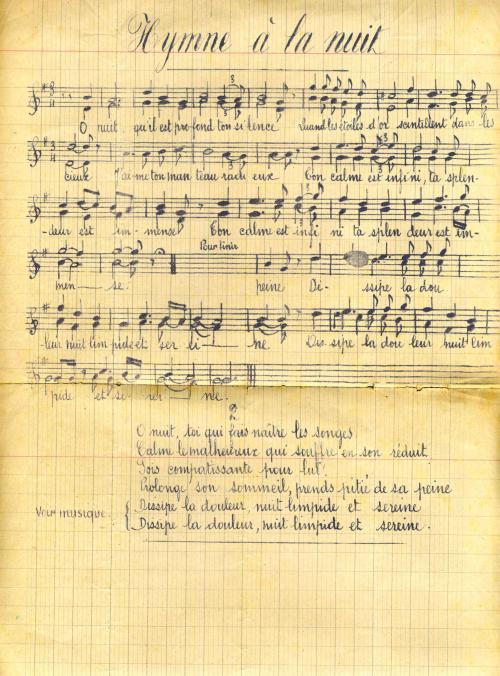 Hymne à la nuit
O nuit, qu'il est pro-fond ton si-lence Quand les étoiles d'or scintillent dans les
cieux J'ai-me ton man-teau radi-eux Ton calme est infi-ni, ta splen-
-deur est im-mense Ton calme est infi ni ta splen deur est im-
Pour finir
men-se. peine Di-ssipe la dou
leur nuit lim pide et ser ei-ne Dis-sipe la dou leur nuit lim
pide et se-rei-ne.
2
O nuit, toi qui fais naître les songes
Calme le malheureux qui souffre en son réduit
Sois compatissante pour lui.
Prolonge son sommeil, prends pitié de sa peine
Dissipe la douleur, nuit limpide et sereine
Voir musique. Dissipe la douleur, nuit limpide et sereine.